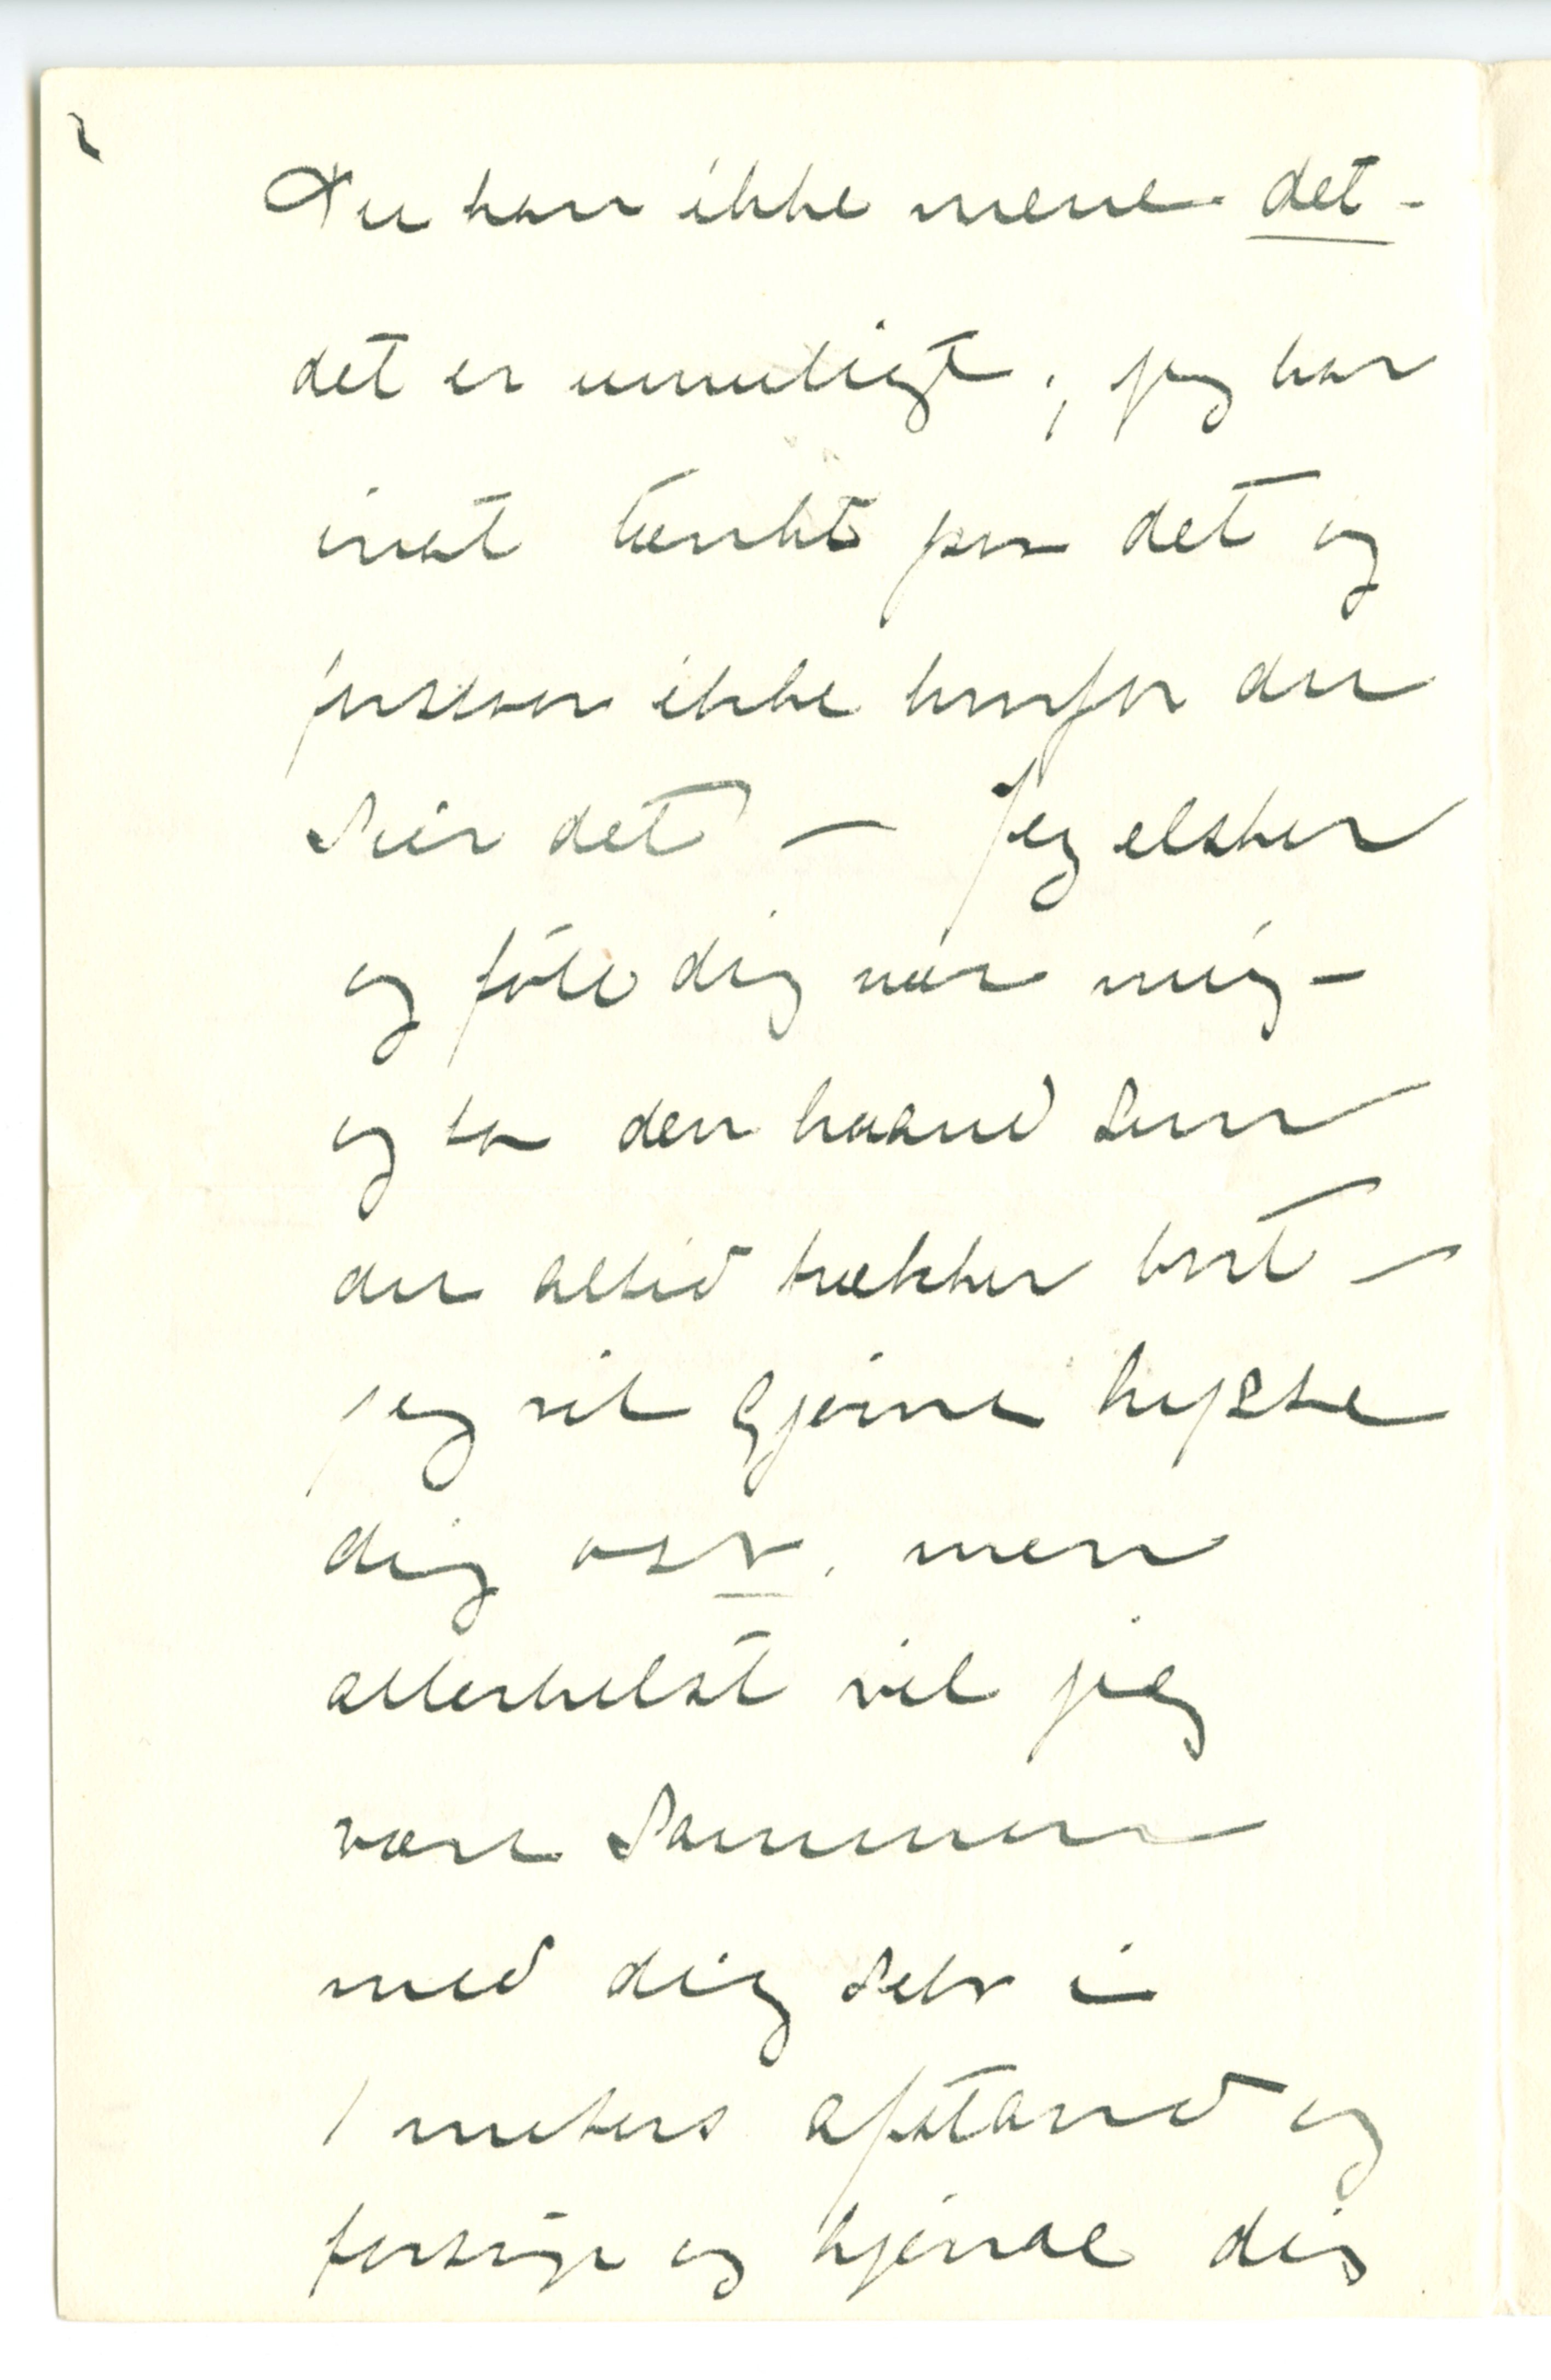 Du kan ikke mene det -
det er umuligt; jeg har
inat tænkt paa det og
forstaar ikke hvorfor du
sier det — Jeg elsker
og føle dig nær mig -
og ta den haand som
du altid trækker bort —
jeg vil gjerne kysse
dig osv. men
allerhelst vil jeg
være sammen
med dig selv i
1 meters afstand og
forsøge og kjende dig